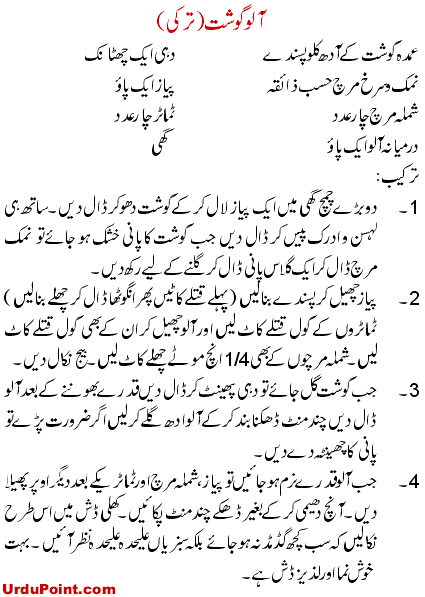 آلو گوشت (ترکی)
عمدہ گوشت کے آدھ کلو پسندے دہی ایک چھٹانک
نمک و سرخ مرچ حسب ذائقہ پیاز ایک پاؤ
شملہ مرچ چار عدد ٹماٹر چار عدد
درمیانہ آلو ایک پاؤ گھی
ترکیب:
1۔ دو بڑے چمچ گھی میں ایک پیاز لال کر کے گوشت دھو کر ڈال دیں۔ ساتھ ہی
لہسن و ادرک پیس کر ڈال دیں جب گوشت کا پانی خشک ہو جائے تو نمک
مرچ ڈال کر ایک گلاس پانی ڈال کر گلنے کے لیے رکھ دیں۔
2۔ پیاز چھیل کر پسندے بنا لیں (پہلے قتلے کاٹیں پھر انگوٹھا ڈال کر چھلے بنا لیں)
ٹماٹروں کے گول قتلے کاٹ لیں اور آلو چھیل کر ان کے بھی گول قتلے کاٹ
لیں۔ شملہ مرچوں کے بھی 1/4 انچ موٹے چھلے کاٹ لیں۔ بیج نکال دیں۔
3۔ جب گوشت گل جائے تو دہی پھینٹ کر ڈال دیں قدرے بھوننے کے بعد آلو
ڈال دیں چند منٹ ڈھکنا بند کر کے آلو ادھ گلے کر لیں اگر ضرورت پڑے تو
پانی کا چھینٹہ دے دیں۔
4۔ جب آلو قدرے نرم ہو جائیں تو پیاز، شملہ مرچ اور ٹماٹر یکے بعد دیگر اوپر پھیلا
دیں۔ آنچ دھیمی کر کے بغیر ڈھکے چند منٹ پکائیں۔ کھلی ڈش میں اس طرح
نکالیں کہ سب کچھ گڈمڈ نہ ہو جائے بلکہ سبزیاں علیحدہ علیحدہ نظر آئیں۔ بہت
خوش نما اور لذیز ڈش ہے۔
UrduPoint.com